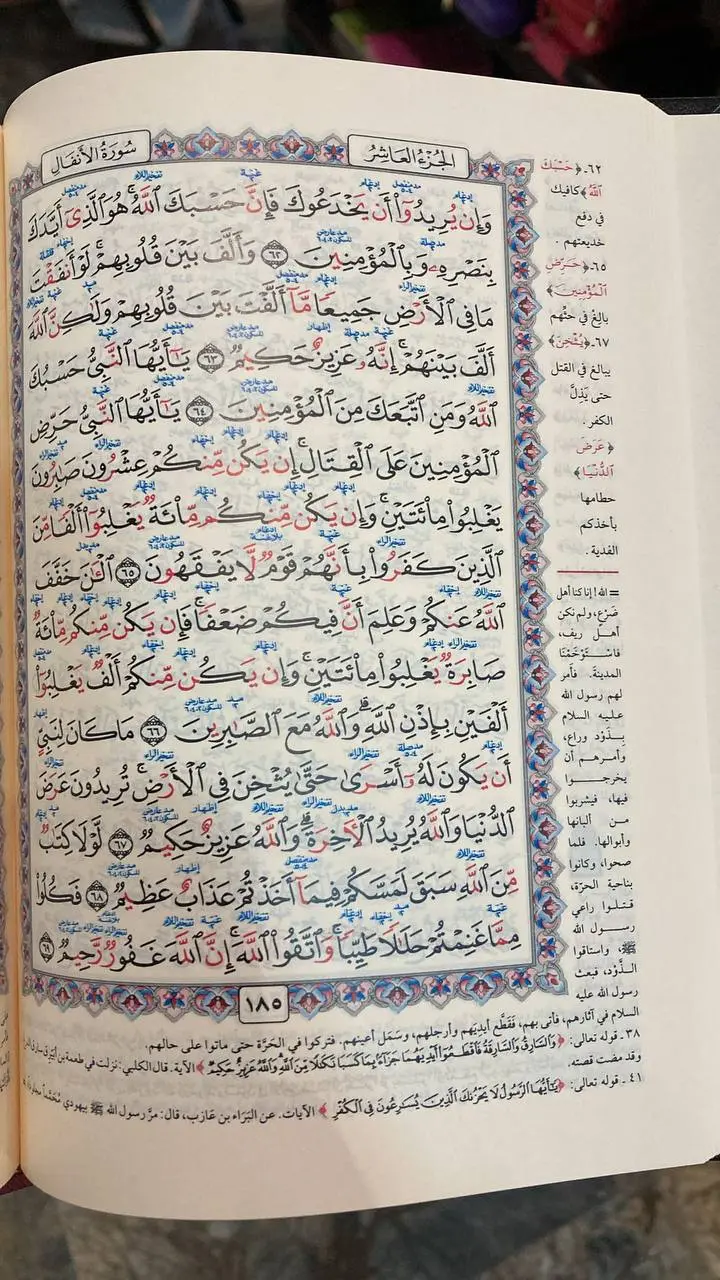 سُورَةُ الأَنفَالِ
الجُزْءُ العَاشِرُ
وَإِن يُرِيدُوٓا۟ أَن يَخْدَعُوكَ فَإِنَّ حَسْبَكَ ٱللَّهُ ۚ هُوَ ٱلَّذِىٓ أَيَّدَكَ
بِنَصْرِهِۦ وَبِٱلْمُؤْمِنِينَ ٦٢ وَأَلَّفَ بَيْنَ قُلُوبِهِمْ ۚ لَوْ أَنفَقْتَ
مَا فِى ٱلْأَرْضِ جَمِيعًا مَّآ أَلَّفْتَ بَيْنَ قُلُوبِهِمْ وَلَـٰكِنَّ ٱللَّهَ
أَلَّفَ بَيْنَهُمْ ۚ إِنَّهُۥ عَزِيزٌ حَكِيمٌ ٦٣ يَـٰٓأَيُّهَا ٱلنَّبِىُّ حَسْبُكَ
ٱللَّهُ وَمَنِ ٱتَّبَعَكَ مِنَ ٱلْمُؤْمِنِينَ ٦٤ يَـٰٓأَيُّهَا ٱلنَّبِىُّ حَرِّضِ
ٱلْمُؤْمِنِينَ عَلَى ٱلْقِتَالِ ۚ إِن يَكُن مِّنكُمْ عِشْرُونَ صَـٰبِرُونَ
يَغْلِبُوا۟ مِا۟ئَتَيْنِ ۚ وَإِن يَكُن مِّنكُم مِّا۟ئَةٌ يَغْلِبُوٓا۟ أَلْفًا مِّنَ
ٱلَّذِينَ كَفَرُوا۟ بِأَنَّهُمْ قَوْمٌ لَّا يَفْقَهُونَ ٦٥ ٱلْـَٔـٰنَ خَفَّفَ
ٱللَّهُ عَنكُمْ وَعَلِمَ أَنَّ فِيكُمْ ضَعْفًا ۚ فَإِن يَكُن مِّنكُم مِّا۟ئَةٌ
صَابِرَةٌ يَغْلِبُوا۟ مِا۟ئَتَيْنِ ۚ وَإِن يَكُن مِّنكُمْ أَلْفٌ يَغْلِبُوٓا۟
أَلْفَيْنِ بِإِذْنِ ٱللَّهِ ۗ وَٱللَّهُ مَعَ ٱلصَّـٰبِرِينَ ٦٦ مَا كَانَ لِنَبِىٍّ
أَن يَكُونَ لَهُۥٓ أَسْرَىٰ حَتَّىٰ يُثْخِنَ فِى ٱلْأَرْضِ ۚ تُرِيدُونَ عَرَضَ
ٱلدُّنْيَا وَٱللَّهُ يُرِيدُ ٱلْـَٔاخِرَةَ ۗ وَٱللَّهُ عَزِيزٌ حَكِيمٌ ٦٧ لَّوْلَا كِتَـٰبٌ
مِّنَ ٱللَّهِ سَبَقَ لَمَسَّكُمْ فِيمَآ أَخَذْتُمْ عَذَابٌ عَظِيمٌ ٦٨ فَكُلُوا۟
مِمَّا غَنِمْتُمْ حَلَـٰلًا طَيِّبًا ۚ وَٱتَّقُوا۟ ٱللَّهَ ۚ إِنَّ ٱللَّهَ غَفُورٌ رَّحِيمٌ ٦٩
١٨٥
٦٢-﴿حَسْبَكَ
اللَّهُ﴾ كافيك
في دفع
خديعتهم .
٦٥-﴿حَرِّضِ
الْمُؤْمِنِينَ﴾
بالِغْ في حثِّهم
٦٧-﴿يُثْخِنَ﴾
يبالغ في القتل
حتى يَذِلَّ
الكفر .
﴿عَرَضَ
الدُّنْيَا﴾
حطامها
بأخذكم
الفدية .
= الله! إنا كنا أهل
ضَرْع، ولم نكن
أهل ريف،
فاسْتَوْخَمْنَا
المدينة. فأمر
لهم رسول الله
عليه السلام
بذَوْد وراع،
وأمرهم أن
يخرجوا
فيها، فيشربوا
من ألبانها
وأبوالها. فلما
صحوا، وكانوا
بناحية الحرّة،
قتلوا راعي
رسول الله
ﷺ، واستاقوا
الذَّوْد، فبعث
رسول الله عليه
السلام في آثارهم، فأتى بهم، فقَطَّع أيديَهم وأرجلهم، وسَمَل أعينهم. فتركوا في الحَرَّة حتى ماتوا على حالهم.
٣٨- قوله تعالى: ﴿وَالسَّارِقُ وَالسَّارِقَةُ فَاقْطَعُوا أَيْدِيَهُمَا جَزَاءً بِمَا كَسَبَا نَكَالًا مِنَ اللَّهِ وَاللَّهُ عَزِيزٌ حَكِيمٌ﴾ الآية. قال الكلبي: نزلت في طعمة بن أبَيْرِق سارق
وقد مضت قصته.
٤١- قوله تعالى: ﴿يَا أَيُّهَا الرَّسُولُ لَا يَحْزُنكَ الَّذِينَ يُسَارِعُونَ فِي الْكُفْرِ﴾ الآيات. عن البَرَاء بن عازب، قال: مرَّ رسول الله ﷺ بيهودي مُحَمَّماً